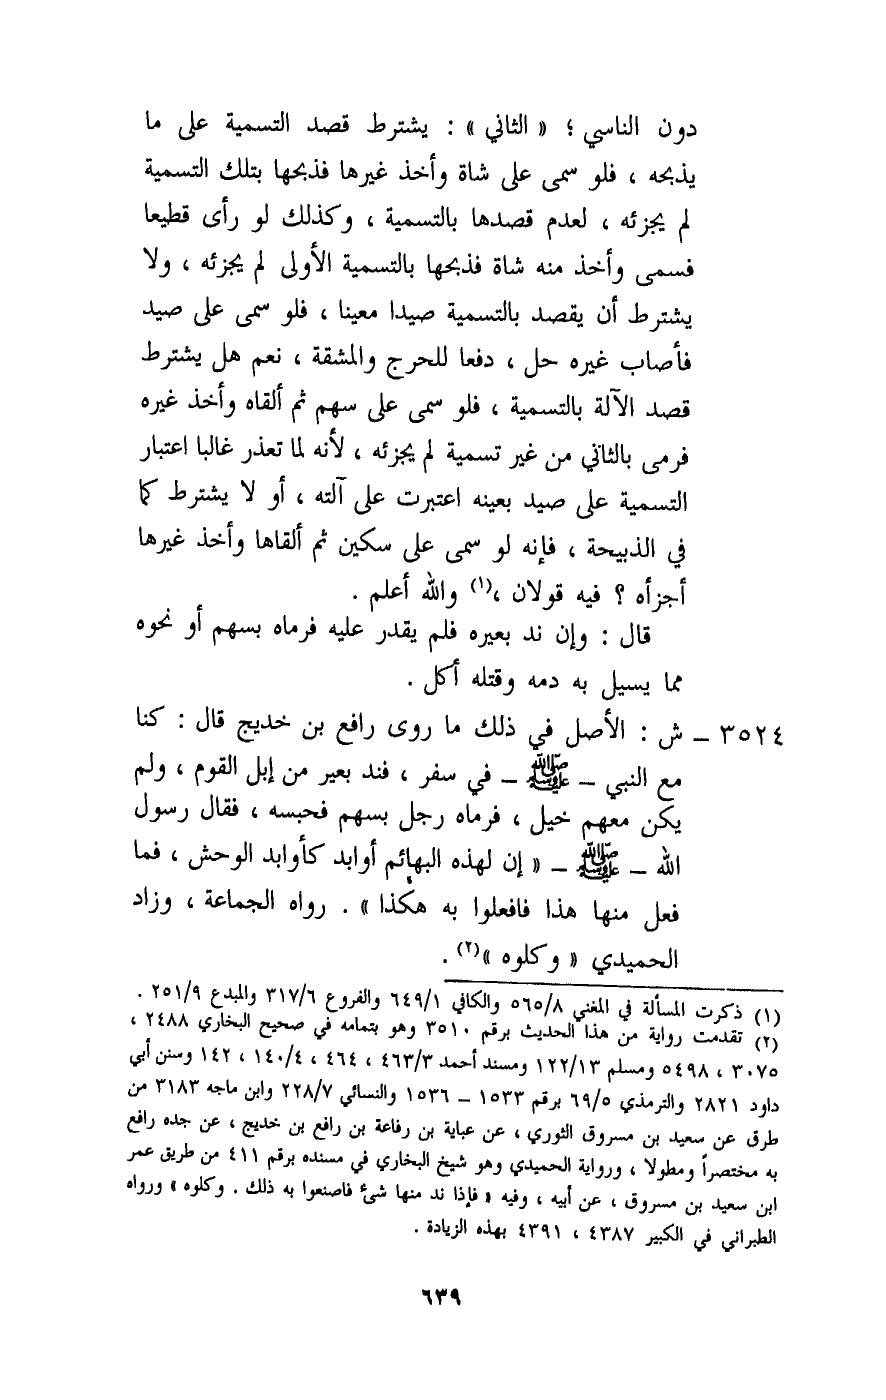 دون الناسي ؛ « الثاني » : يشترط قصد التسمية على ما
يذبحه ، فلو سمى على شاة وأخذ غيرها فذبحها بتلك التسمية
لم يجزئه ، لعدم قصدها بالتسمية ، وكذلك لو رأى قطيعا
فسمى وأخذ منه شاة فذبحها بالتسمية الأولى لم يجزئه ، ولا
يشترط أن يقصد بالتسمية صيدا معينا ، فلو سمى على صيد
فأصاب غيره حل ، دفعا للحرج والمشقة ، نعم هل يشترط
قصد الآلة بالتسمية ، فلو سمى على سهم ثم ألقاه وأخذ غيره
فرمى بالثاني من غير تسمية لم يجزئه ، لأنه لما تعذر غالبا اعتبار
التسمية على صيد بعينه اعتبرت على آلته ، أو لا يشترط كما
في الذبيحة ، فإنه لو سمى على سكين ثم ألقاها وأخذ غيرها
أجزأه ؟ فيه قولان ،(١) والله أعلم .
قال : وإن ند بعيره فلم يقدر عليه فرماه بسهم أو نحوه
مما يسيل به دمه وقتله أكل .
٣٥٢٤ ــ ش : الأصل في ذلك ما روى رافع بن خديج قال : كنا
مع النبي ــ ﷺ ــ في سفر ، فند بعير من إبل القوم ، ولم
يكن معهم خيل ، فرماه رجل بسهم فحبسه ، فقال رسول
الله ــ ﷺ ــ « إن لهذه البهائم أوابد كأوابد الوحش ، فما
فعل منها هذا فافعلوا به هكذا » . رواه الجماعة ، وزاد
الحميدي « وكلوه »(٢) .
(١) ذكرت المسألة في المغني ٥٦٥/٨ والكافي ٦٤٩/١ والفروع ٣١٧/٦ والمبدع ٢٥١/٩ .
(٢) تقدمت رواية من هذا الحديث برقم ٣٥١٠ وهو بتمامه في صحيح البخاري ٢٤٨٨ ،
٣٠٧٥ ، ٥٤٩٨ ومسلم ١٢٢/١٣ ومسند أحمد ٤٦٣/٣ ، ٤٦٤ ، ١٤٠/٤ ، ١٤٢ وسنن أبي
داود ٢٨٢١ والترمذي ٦٩/٥ برقم ١٥٣٣ ــ ١٥٣٦ والنسائي ٢٢٨/٧ وابن ماجه ٣١٨٣ من
طرق عن سعيد بن مسروق الثوري ، عن عباية بن رفاعة بن رافع بن خديج ، عن جده رافع
به مختصراً ومطولا ، ورواية الحميدي وهو شيخ البخاري في مسنده برقم ٤١١ من طريق عمر
ابن سعيد بن مسروق ، عن أبيه ، وفيه « فإذا ند منها شئ فاصنعوا به ذلك . وكلوه » ورواه
الطبراني في الكبير ٤٣٨٧ ، ٤٣٩١ بهذه الزيادة .
٦٣٩